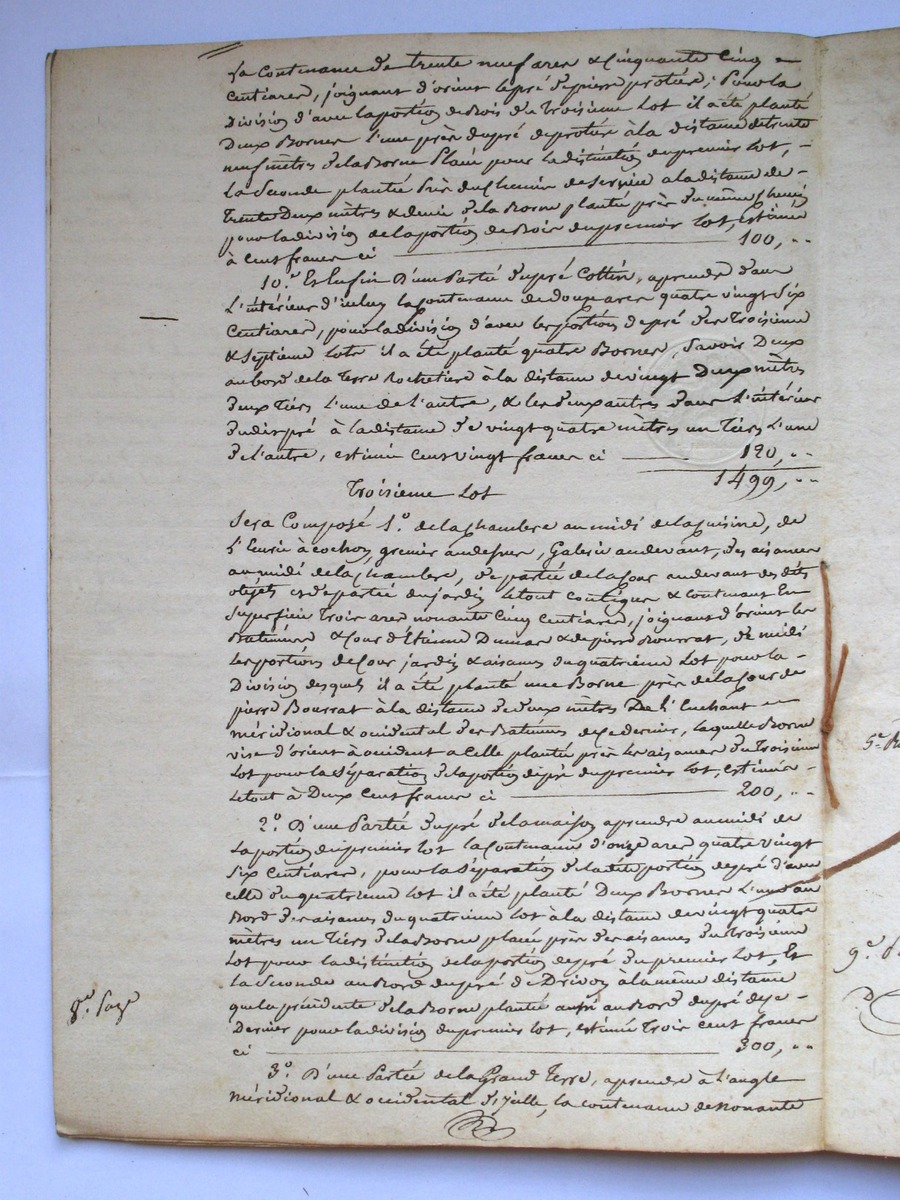 la Contenance de trente neuf ares & Cinquante Cinq
Centiares, joignant d'orient le pré de pierre protière; Pour la
Division d'avec la portion de Bois du Troisième Lot il a été planté
Deux Bornes L'une près du pré de protière à la distance de trente
neuf mètres de la Borne Placée pour la distinction du premier Lot,
La Seconde plantée Près du Chemin de Service à la distance de
Trente Deux mètres & demie de la Borne plantée près du même Chemin
pour la division de la portion de Bois du premier Lot, estimée
à Cent francs ci 100, "
10.° Et Enfin D'une Partie du pré Cottin, à prendre dans
L'intérieur d'icelui la Contenance de douze ares quatre vingt Six
Centiares, pour la division d'avec les portions de pré des Troisième
& Septième lots il a été planté quatre Bornes, Savoir Deux
au bord de la Terre Rochetière à la distance de vingt Deux mètres
deux Tiers L'une de L'autre, & les deux autres dans L'intérieur
du dit pré à la distance de vingt quatre mètres un Tiers L'une
de L'autre, estimée Cent vingt francs ci 120, "
1499, "
Troisième Lot
Sera Composé 1.° de la Chambre au midi de la Cuisine, de
L'Ecurie à cochon, grenier au dessus, Galerie au devant, des aisances
au midi de la Chambre, de partie de la Cour au devant des dits
objets et de partie du jardin le tout Contigue & Contenant En
Superficie Trois ares nonante Cinq Centiares, joignant d'orient les
Batiments & Cour d'Étienne Dumas & de pierre Bourrat, de midi
les portions de Cour jardin & aisances du quatrième Lot pour la
Division desquels il a été planté une Borne près de la Cour de
pierre Bourrat à la distance de deux mètres De l'
méridional & occidental des Batiments de ce dernier, laquelle Borne
vise d'orient à occident à Celle plantée près les aisances du Troisième
Lot pour la Séparation de la portion de pré du premier Lot, estimée
Le tout à Deux Cent francs ci 200, "
2.° D'une Partie du pré de la maison à prendre au midi de
La portion du premier Lot la Contenance d'onze ares quatre vingt
Six Centiares, pour la Séparation de la dite portion de pré d'avec
celle du quatrième Lot il a été planté Deux Bornes L'une au
Bord des aisances du quatrième Lot à la distance de vingt quatre
mètres un Tiers de la Borne placée près des aisances du troisième
Lot pour la distinction de la portion de pré du premier Lot, Et
la Seconde au Bord du pré de Drivon à la même distance
que la précédente de la Borne plantée aussi au Bord du pré de ce
Dernier pour la division du premier Lot, estimée Trois Cent francs
ci 300, "
8.e Page
3.° D'une Partie de la Grand Terre, à prendre à L'angle
méridional & occidental d'icelle, la contenance de nonante
5.e
9.e